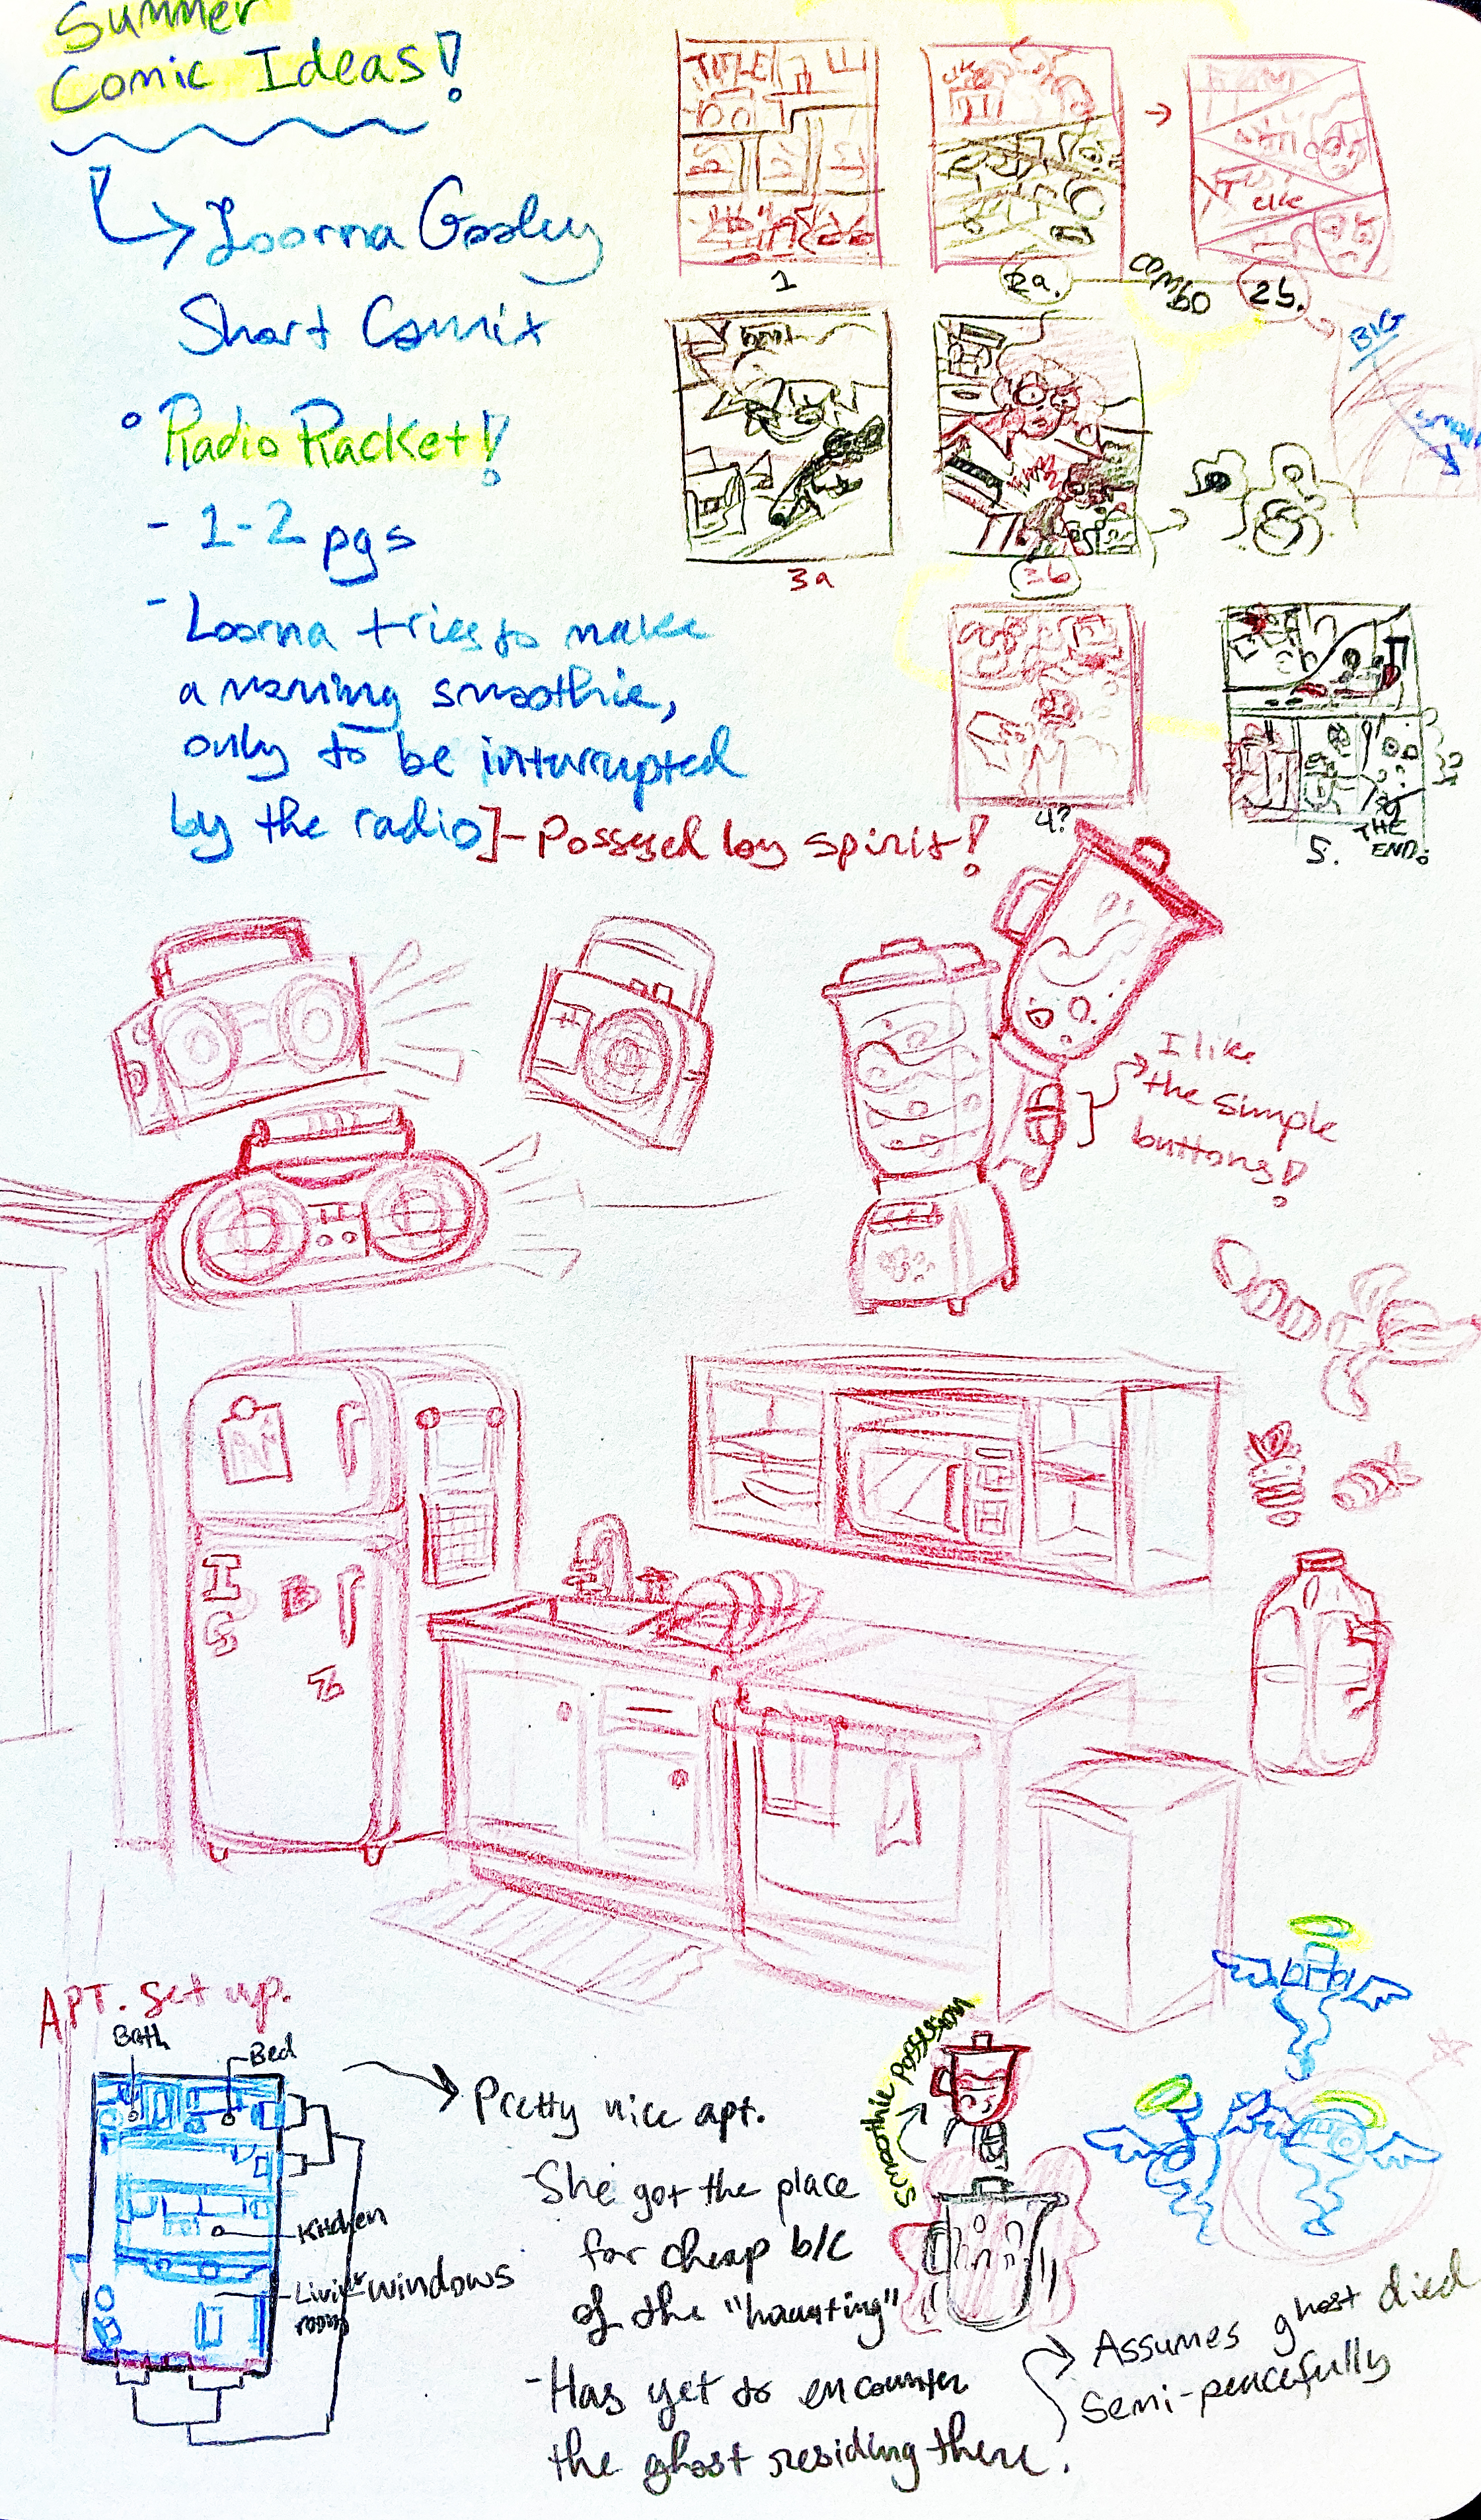 Summer
Comic Ideas!
Loorna Gooley
Short Comix
Radio Racket!
- 1-2 pgs
- Loorna tries to make
a morning smoothie,
only to be interrupted
by the radio]-Possesed by spirit!
TITLE
1
2a.
combo
2b.
BIG
small
3a
3b
4?
5.
THE
END.
I like
the simple
buttons!
I
B
G
Z
APT. set up.
Bath
Bed
Kitchen
Living
room
windows
Pretty nice apt.
-She got the place
for cheap b/c
of the "haunting"
-Has yet to encounter
the ghost residing there.
Smoothie Possession
Assumes ghost died
semi-peacefully